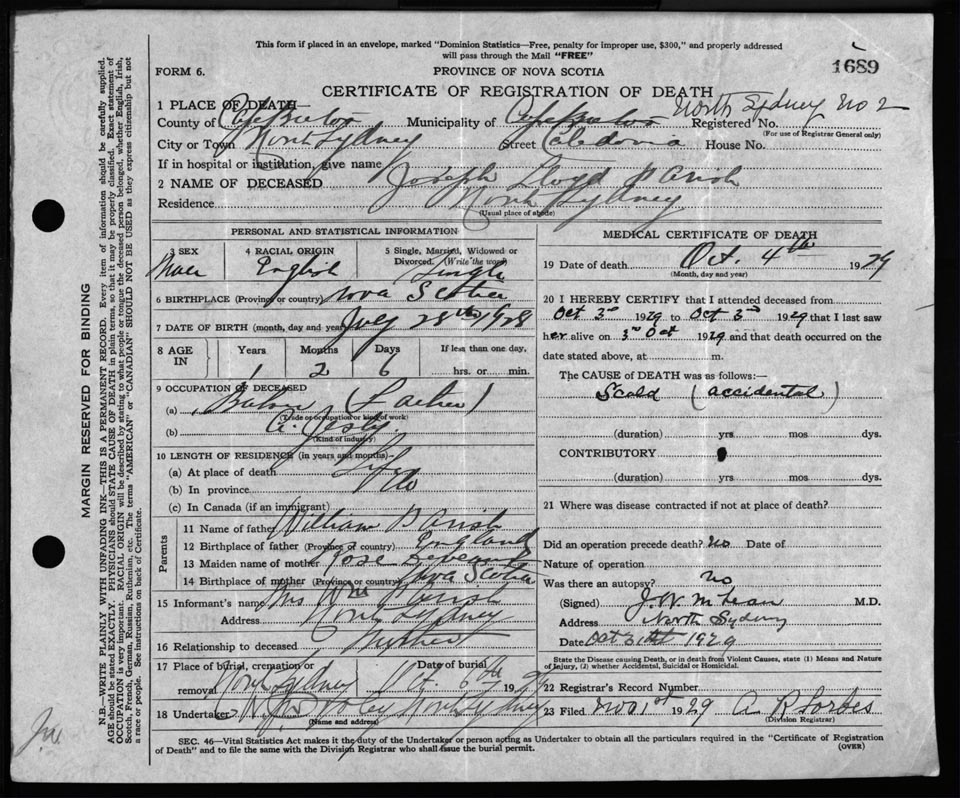 This form if placed in an envelope, marked "Dominion Statistics—Free, penalty for improper use, $300," and properly addressed
will pass through the Mail "FREE"
1689
FORM 6.
PROVINCE OF NOVA SCOTIA
CERTIFICATE OF REGISTRATION OF DEATH
North Sydney No 2
1 PLACE OF DEATH—
County of Cape Breton Municipality of Cape Breton Registered No.
(For use of Registrar General only)
City or Town North Sydney Street Caledonia House No.
If in hospital or institution, give name
2 NAME OF DECEASED Joseph Lloyd Parish
Residence North Sydney
(Usual place of abode)
PERSONAL AND STATISTICAL INFORMATION
3 SEX 4 RACIAL ORIGIN 5 Single, Married, Widowed or
Divorced. (Write the word)
English Single
6 BIRTHPLACE (Province or country) Nova Scotia
7 DATE OF BIRTH (month, day and year) July 28th 1928
8 AGE IN Years Months Days If less than one day,
1 2 6 hrs. or min.
9 OCCUPATION OF DECEASED
(a)
(Trade or occupation or kind of work)
(b)
(Kind of industry)
10 LENGTH OF RESIDENCE (in years and months)
(a) At place of death Life
(b) In province do
(c) In Canada (if an immigrant)
Parents
11 Name of father William Parish
12 Birthplace of father (Province or country) England
13 Maiden name of mother Rose
14 Birthplace of mother (Province or country) Nova Scotia
15 Informant's name Mrs Wm Parish
Address North Sydney
16 Relationship to deceased Mother
17 Place of burial, cremation or Date of burial
removal North Sydney Oct. 6th 1929
18 Undertaker North Sydney
(Name and address)
MEDICAL CERTIFICATE OF DEATH
19 Date of death Oct. 4th 1929
(Month, day and year)
20 I HEREBY CERTIFY that I attended deceased from
Oct 3rd 1929 to Oct 3rd 1929 that I last saw
her alive on 3rd Oct 1929 and that death occurred on the
date stated above, at m.
The CAUSE of DEATH was as follows:
Scald (accidental)
(duration) yrs mos dys.
CONTRIBUTORY
(duration) yrs mos dys.
21 Where was disease contracted if not at place of death?
Did an operation precede death? no Date of
Nature of operation
Was there an autopsy? no
(Signed) J. W. McLean M.D.
Address North Sydney
Date Oct 31st 1929
State the Disease causing Death, or in death from Violent Causes, state (1) Means and Nature
of Injury, (2) whether Accidental, Suicidal or Homicidal.
22 Registrar's Record Number
23 Filed Nov 1st 1929 A R Forbes
(Division Registrar)
SEC. 46—Vital Statistics Act makes it the duty of the Undertaker or person acting as Undertaker to obtain all the particulars required in the "Certificate of Registration
of Death" and to file the same with the Division Registrar who shall issue the burial permit.
(OVER)
MARGIN RESERVED FOR BINDING
N.B.—WRITE PLAINLY WITH UNFADING INK—THIS IS A PERMANENT RECORD. Every item of information should be carefully supplied.
AGE should be stated EXACTLY. PHYSICIANS should STATE CAUSE OF DEATH in plain terms, so that it may be properly classified. Exact statement of
OCCUPATION is very important. RACIAL ORIGIN will be described by stating to what people or tongue the deceased person belonged, whether English, Irish,
Scotch, French, German, Russian, Ruthenian, etc. The terms "AMERICAN" or "CANADIAN" SHOULD NOT BE USED as they express citizenship but not
a race or people. See instructions on back of Certificate.